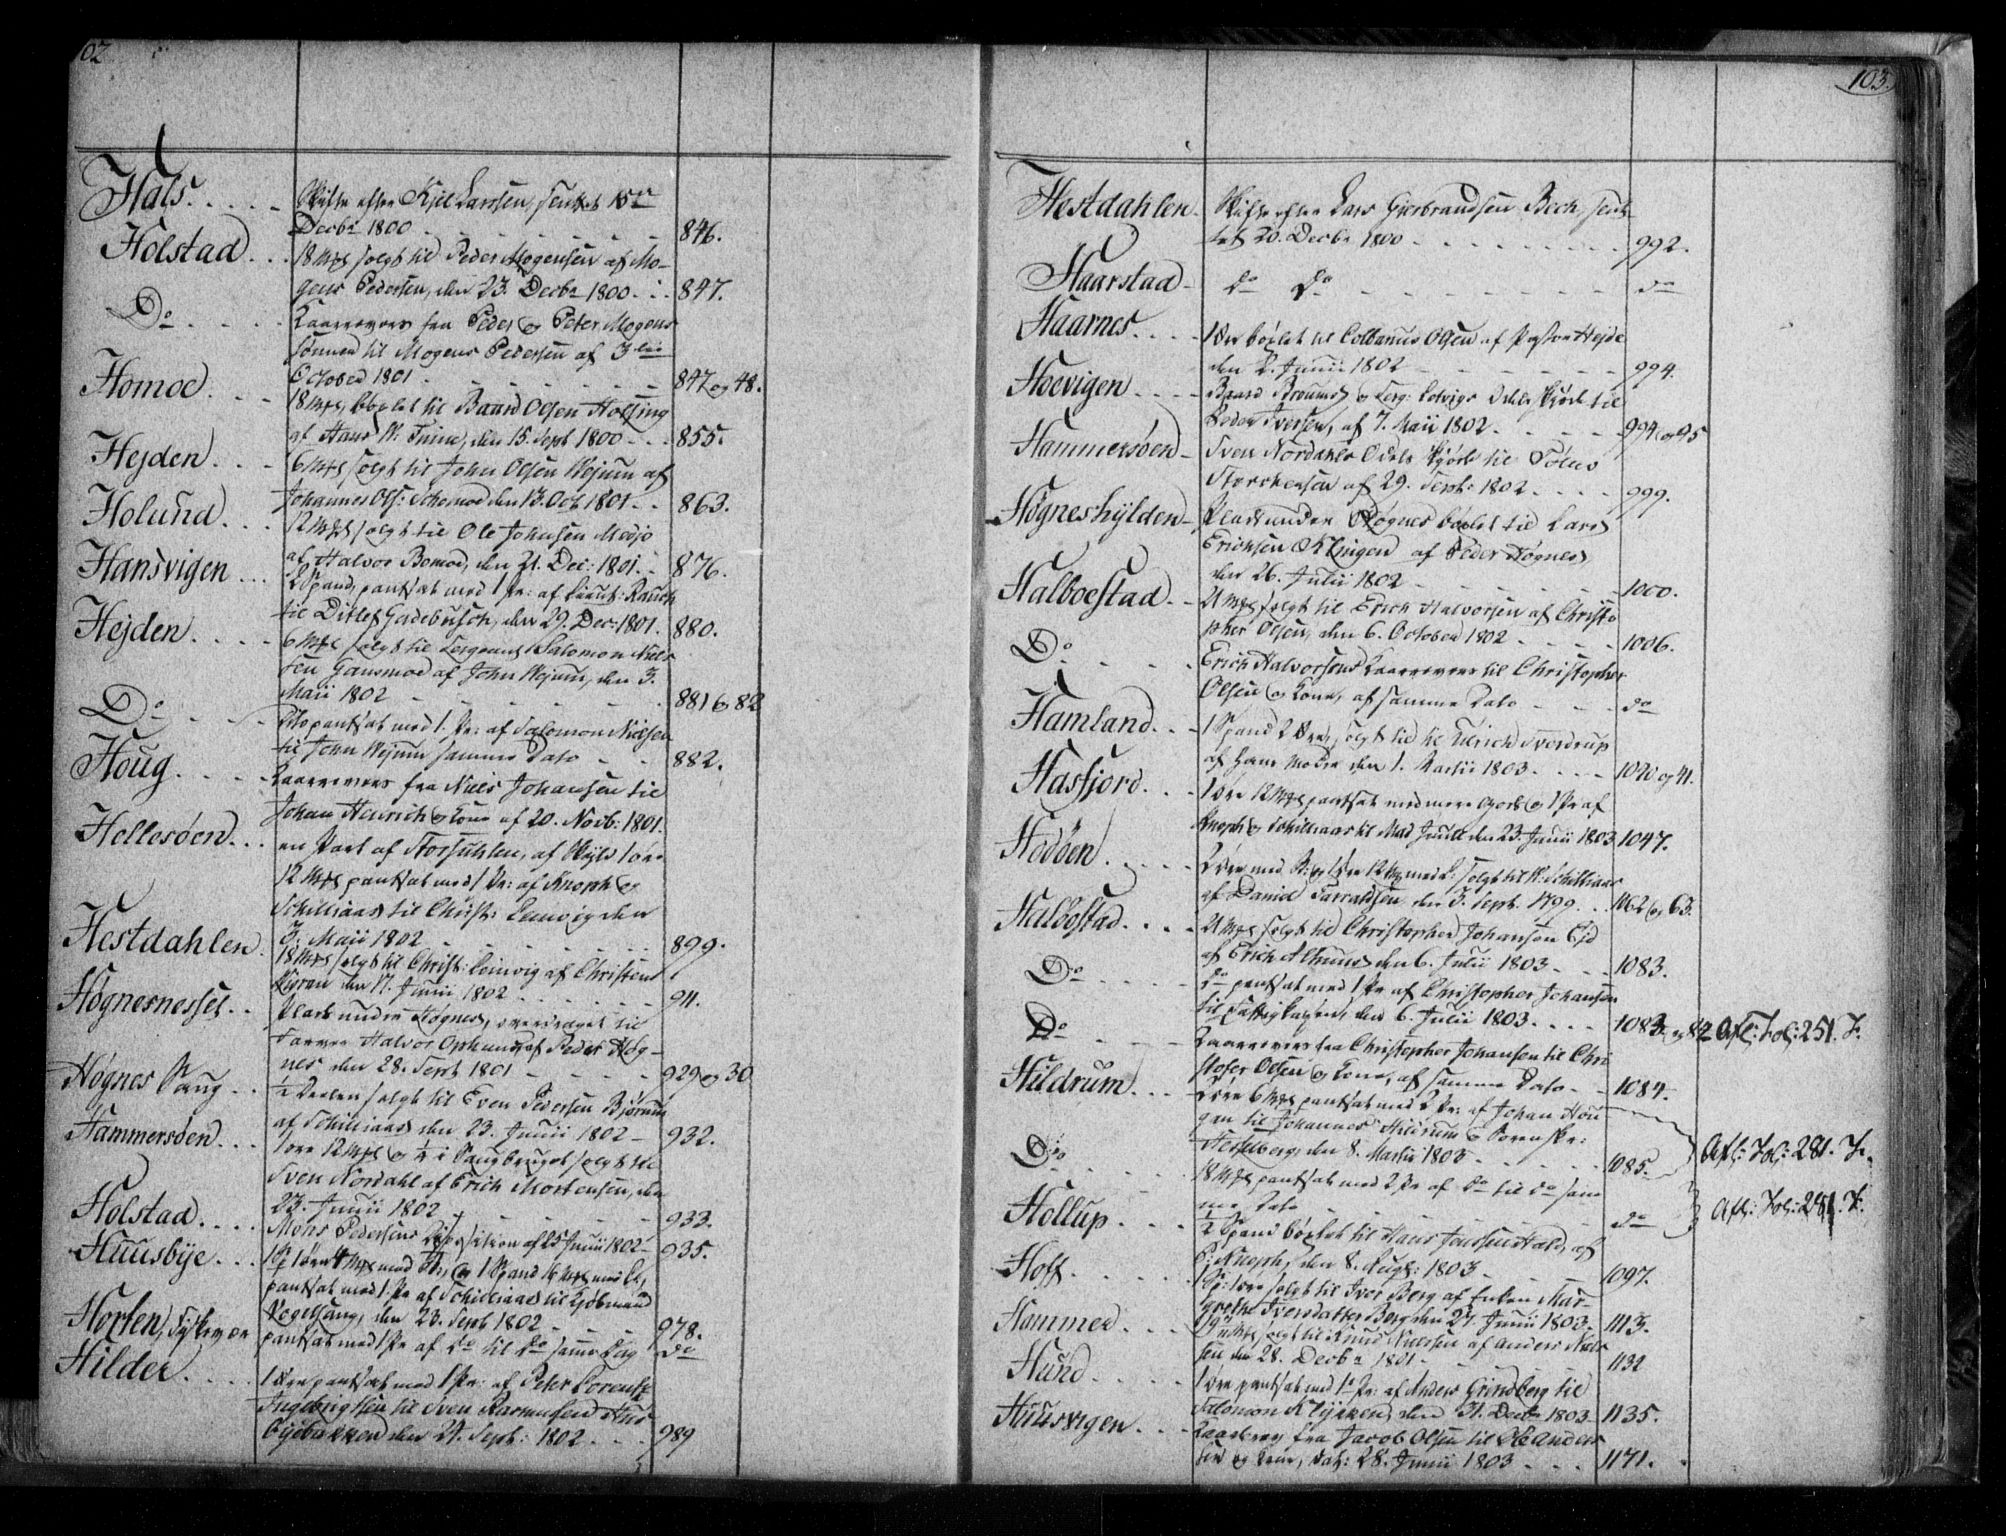 102
Hals. . . . . Skifte efter Kjel Larssen, sluttet 15de
Decbr 1800 . . . . . . 846.
Holstad . . . 18 Mkl solgt til Peder Mogensen af Mo-
gens Pedersen, den 23. Decbr 1800 . . . 847.
Do . . . . Kaarbrev fra Peder og Peter Mogens
sønner til Mogens Pedersen af 3die
October 1801 . . . . . . 847 og 48.
Homoe . . . 18 Mkl, bøxlet til Baard Olsen Holsing
af Hans W. Irine, den 15. Sept 1800 . . . 855.
Hejden . . . 6 Mkl solgt til John Olsen Wejum af
Johannes Ols: Schemoe den 13. Oct 1801 . . 863.
Holund . . . 12 Mkl solgt til Ole Johnsen Medjo
af Halvor Bomoe, den 21. Dec: 1801 . . 876.
Hansvigen . . . 2 Spand, pantsat med 1 Pr: af Lieut: Rauch
til Ditlef Gadebusch, den 29. Dec: 1801. 880.
Hejden . . . . 6 Mkl solgt til Sergeant Salomon Niels
sen Gansmoe af John Wejum, den 3.
Maii 1802 . . . . . . 881 og 82
Do . . . . Dto pantsat med 1. Pr: af Salomon Nielsen
til John Wejum samme Dato . . 882.
Houg . . . . Kaarbrev fra Niels Johansen til
Johan Henrich og Kone af 20. Novb: 1801.
Hellesøen . . . en Part af Storsuhlen, af Skyld 1 øre
12 Mkl pantsat med 1 Pr: af Knoph og
Schilliaas til Christ: Leinvig den
3. Maii 1802 . . . . . . 899.
Hestdahlen . 18 Mkl solgt til Christ: Leinvig af Christen
den 11. Junii 1802 . . . . . . 911.
Høgnesnesset . . Plads under Høgnes, overdraget til
Halvor af Peder Høg-
nes den 28. Sept 1801 . . . . 929 og 30
Høgnes Saug . . ½ Deelen solgt til Even Pedersen Bjørum
af Schilliaas den 23. Junii 1802 – 932.
Hammersøen . . . 1 øre 12 Mkl og ½ i Saugbruget solgt til
Sven Nordahl af Erich Mortensen, den
23. Junii 1802 . . . . . . 933.
Holstad . . . . Mons Pedersens Disposition af 25 Junii 1802 – 935.
Huusbÿe . . . 1 Sp 1 øre 4 Mkl med B:, og 1 Spand 16 Mkl med L:,
pantsat med 1 Pr af Schilliaas til Kjøbmand
Vogelsang, den 23. Sept 1802 . . . 978.
Horten, Fiskevær pantsat med 1 Pr af do til do samme Dag do
Hilder . . . . 1 øre pantsat med 1 Pr: af Peter Lorents
Ingebrigtsen til Sven Rasmussen Huus
byebakken den 24. Sept: 1802 . . . 989
103.
Hestdahlen . Skifte efter Lars Gjerbrandsen Bech, slut-
tet 20. Decbr 1800 . . . . . . 992.
Haarstad – do do . . . . . . do
Haarnes . . . . 1 øre bøxlet til Colbanus Olsen af Pastor Hejde
den 2. Junii 1802 . . . . . 994.
Hoevigen . . . . Baard Broums og Serg: Lovigs Odels Skjøde til
Peder Iversen, af 7. Maii 1802 . . . . 994 og 95
Hammersøen – Sven Nordahls Odels Skjøde til Tølus
Storchersen af 29. Septb: 1802 . . . . 999.
Høgneshÿlden – Plads under Høgnes bøxlet til Lars
Erichsen Klingen af Peder Høgnes
den 26. Julii 1802 . . . . . . 1000.
Halboestad . . 21 Mkl solgt til Erich Halvorsen af Christo
pher Olsen, den 6. October 1802 . . . . 1006.
Do . . . . Erich Halvorsens Kaarbrev til Christopher
Olsen og Kone, af samme Dato . . . do
Hamland . . . 1 Spand 2 øre, solgt til Ulrich Sverdrup
af Hans Moder den 1. Martii 1803 . . . . 1020 og 41.
Hasfjord . . . 1 øre 12 Mkl pantsat med mere Gods og 1 Pr af
Knoph og Schilliaas til Mad Juull den 23. Junii 1803 1047.
Hodøen . . . . 2 øre med B: og 1 øre 12 Mkl med L: solgt til N: Schilliaas
af Daniel Tarraldsen den 3. Sept. 1799 . . 1062 og 63.
Halbostad . . . . 21 Mkl solgt til Christopher Johansen Eid
af Erich Almuus den 6. Julii 1803 . . . 1083.
Do . . . . do pantsat med 1 Pr af Christopher Johansen
til Fattigkassen, den 6. Julii 1803 . . . . 1083. og 84 Afl: Fol: 251. F.
Do . . . . Kaarbrev fra Christopher Johansen til Chri
stofer Olsen og Kone, af samme Dato . – 1084.
Hildrum . . . 2 øre 6 Mkl pantsat med 2 Pr: af Johan Hou
gen til Johannes Hildrum og Sorenskr:
Hesselberg, den 8. Martii 1803 . . . . . 1085. Afl: Fol: 281. F.
Do . . . . 18 Mkl pantsat med 2 Pr af do til do sam
me Dato . . . . . . do Afl: Fol: 281. F.
Hollup . . . . ½ Spand bøxlet til Hans Jonssen Hald, af
P: Knoph, den 8. Augt: 1803 . . . . 1097.
Hoff . . . . . 1 Sp: 1 øre solgt til Iver Berg af Enken Mar-
grethe Iversdatter Berg den 27. Junii 1803 . 1113.
Hammer . . . Mkl solgt til Knud Nielssen af Anders Niels
sen den 28. Decbr 1801 . . . . . 1132
Hund . . . . 1 øre pantsat med 1 Pr: af Anders Grindberg til
Salomon Klÿkken, den 31. Decbr 1803 – 1135.
Huusvigen . . . Kaarbrev fra Jacob Olsen til Ole Anders
sen og Kone, dat: 28. Junii 1803 . . . 1171.